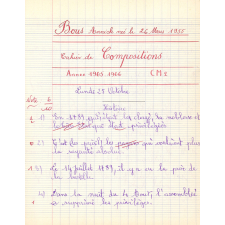 Bous Annick né le 24 Mars 1955
Cahier de Compositions
Année 1965 1966 CM2
Lundi 25 Octobre
Note
Histoire
1) En 1789 qu'était le clergé, la noblesse et
tiers état que était privilégiés
2) C'est les qui voulaient plus
la royauté absolue.
3) Le 14 juillet 1789, il y a eu la prise de
la bastille.
4) Dans la nuit du 4 Août, l'assemblée
supprime les privilèges.